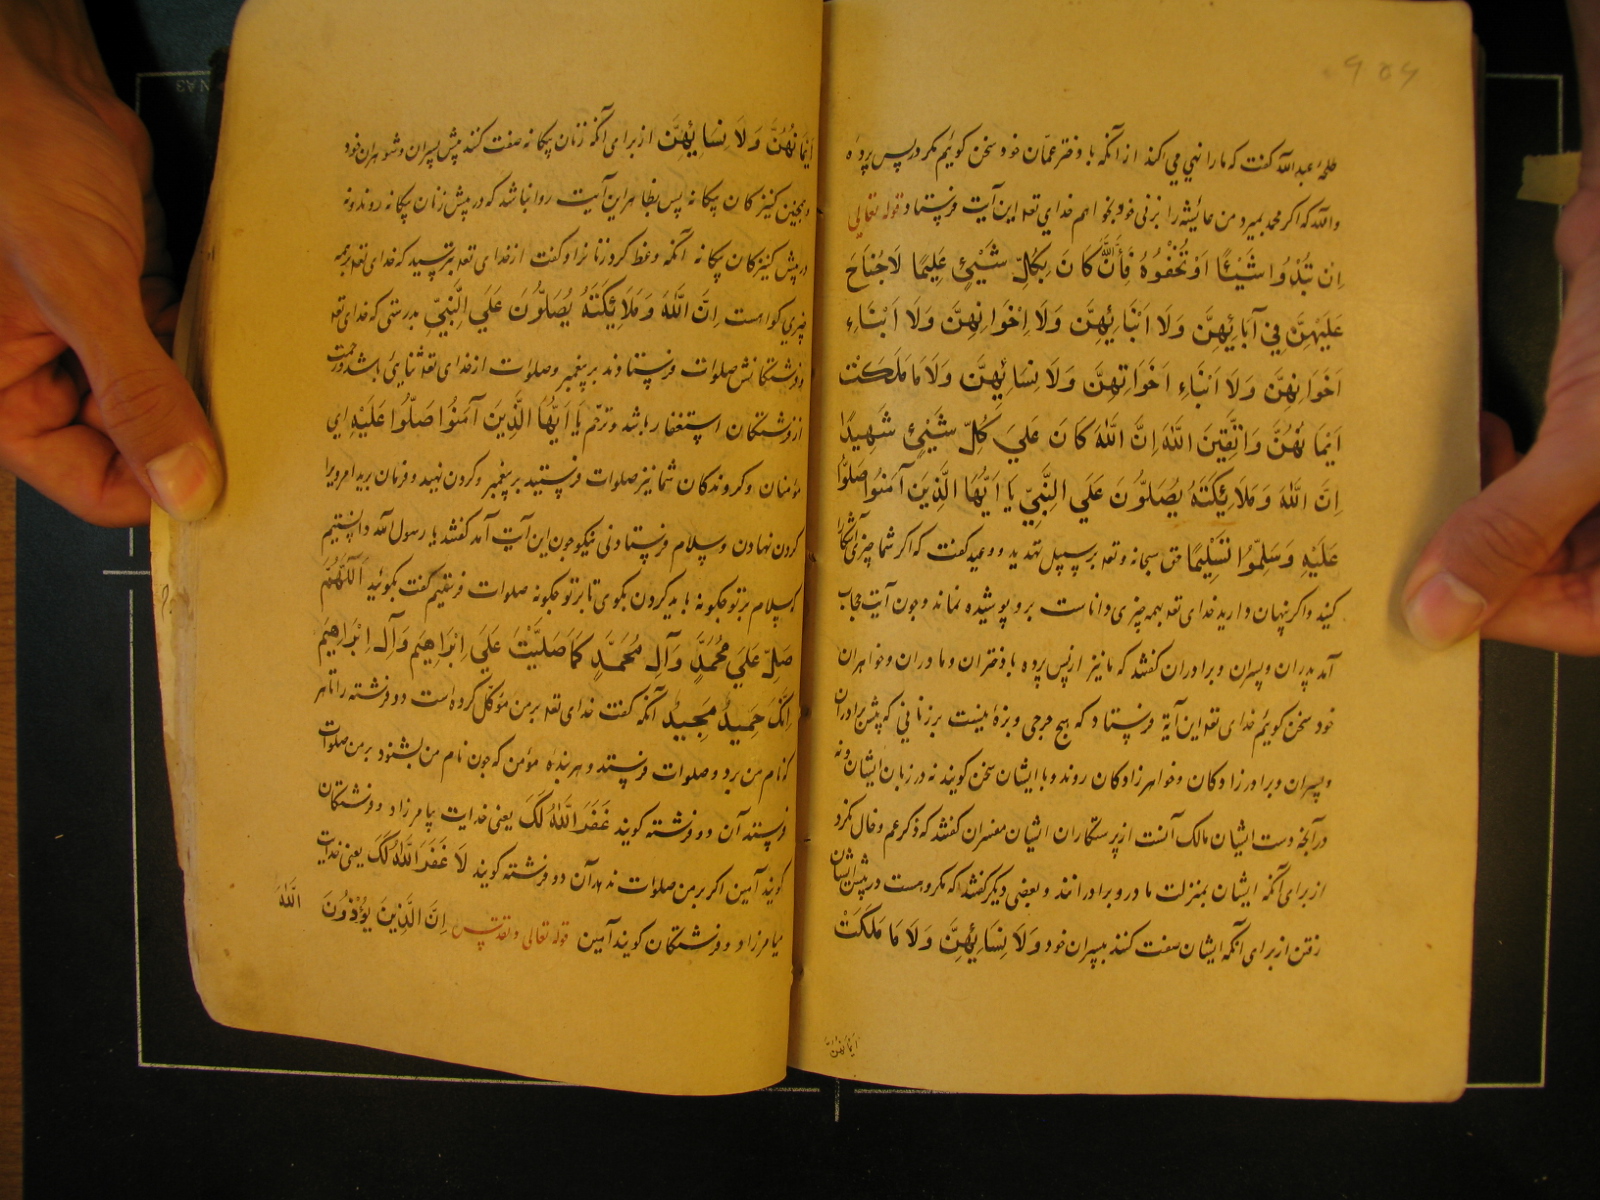 ۶۵۶
طلحه عبدالله کفت که مارا نهی می کند از آنکه با دختر عمّان خود سخن کوییم مکر در پس پرده
والله که اکر محمد بمیرد من عائیشه را بزنی خود بخواهم خدای تعه این آیت فرستاد قوله تعالی
اِن تُبْدُوا شَیْئًا اَوْ تُخْفُوهُ فَاِنَّ اللّٰهَ کَانَ بِکُلِّ شَیْئٍ عَلِیمًا لَا جُنَاحَ
عَلَیْهِنَّ فِی آبَائِهِنَّ وَلَا اَبْنَائِهِنَّ وَلَا اِخْوَانِهِنَّ وَلَا اَبْنَاءِ
اِخْوَانِهِنَّ وَلَا اَبْنَاءِ اَخَوَاتِهِنَّ وَلَا نِسَائِهِنَّ وَلَا مَا مَلَکَتْ
اَیْمَانُهُنَّ وَاتَّقِینَ اللّٰهَ اِنَّ اللّٰهَ کَانَ عَلَی کُلِّ شَیْئٍ شَهِیدًا
اِنَّ اللّٰهَ وَمَلَائِکَتَهُ یُصَلُّونَ عَلَی النَّبِیِّ یَا اَیُّهَا الَّذِینَ آمَنُوا صَلُّوا
عَلَیْهِ وَسَلِّمُوا تَسْلِیمًا حق سبحانه وتعه بر سبیل تهدید و وعید کفت که اکر شما چیزی آشکارا
کنید واکر پنهان دارید خدای تعه بهمه چیزی داناست برو پوشیده نماند وچون آیت حجاب
آمد پدران وپسران وبرادران کفتند که ما نیز از پس پرده با دختران ومادران وخواهران
خود سخن کوییم خدای تعه این آیة فرستاد که هیچ حرجی وبزهٔ نیست بر زنانی که پیش برادران
وپسران وبرادر زادکان وخواهر زادکان روند وبا ایشان سخن کویند نه در زبان ایشان ونه
در آنچه دست ایشان مالک آنست از پرستکاران ایشان مفسران کفتند که ذکر عم وخال نکرد
از برای آنکه ایشان بمنزلت مادر وبرادرانند وبعضی دیکر کفتند که مکروهست در پیش ایشان
رفتن از برای آنکه ایشان صفت کنند بپسران خود وَلَا نِسَائِهِنَّ وَلَا مَا مَلَکَتْ
ایمانهن
اَیْمَانُهُنَّ وَلَا نِسَائِهِنَّ از برای آنکه زنان بیکانه صفت کنند پیش پسران وشوهران خود
وهمچنین کنیزکان بیکانه پس بظاهر این آیت روا نباشد که در پیش زنان بیکانه روند ونه
در پیش کنیزکان بیکانه آنکه وعظ کرد زنانرا وکفت از خدای تعه بترسید که خدای تعه بر همه
چیزی کواهست اِنَّ اللّٰهَ وَمَلَائِکَتَهُ یُصَلُّونَ عَلَی النَّبِیِّ بدرستی که خدای تعه
وفرشتکانش صلوات فرستادند بر پیغمبر وصلوات از خدای تعه ثنایی باشد ورحمت
از فرشتکان استغفار باشد وترحّم یَا اَیُّهَا الَّذِینَ آمَنُوا صَلُّوا عَلَیْهِ ای
مؤمنان وکروندکان شما نیز صلوات فرستید بر پیغمبر وکردن نهید وفرمان برید امر ویرا
کردن نهادن وسلام فرستادنی نیکو چون این آیت آمد کفتند یا رسول الله دانستیم
که سلام بر تو چکونه باید کردن بکوی تا بر تو چکونه صلوات فرستیم کفت بکوئید اَللّٰهُمَّ
صَلِّ عَلَی مُحَمَّدٍ وَآلِ مُحَمَّدٍ کَمَا صَلَّیْتَ عَلَی اِبْرَاهِیمَ وَآلِ اِبْرَاهِیمَ
اِنَّکَ حَمِیدٌ مَجِیدٌ آنکه کفت خدای تعه بر من مؤکل کرده است دو فرشته را تا هر
که نام من برد وصلوات فرستد وهر بندهٔ مؤمن که چون نام من بشنود بر من صلوات
فرستد آن دو فرشته کویند غَفَرَ اللّٰهُ لَکَ یعنی خدایت بیامرزاد وفرشتکان
کویند آمین اکر بر من صلوات ندهد آن دو فرشته کویند لَا غَفَرَ اللّٰهُ لَکَ یعنی خدایت
میامرزاد وفرشتکان کویند آمین قوله تعالی وتقدس اِنَّ الَّذِینَ یُؤْذُونَ اللّٰهَ